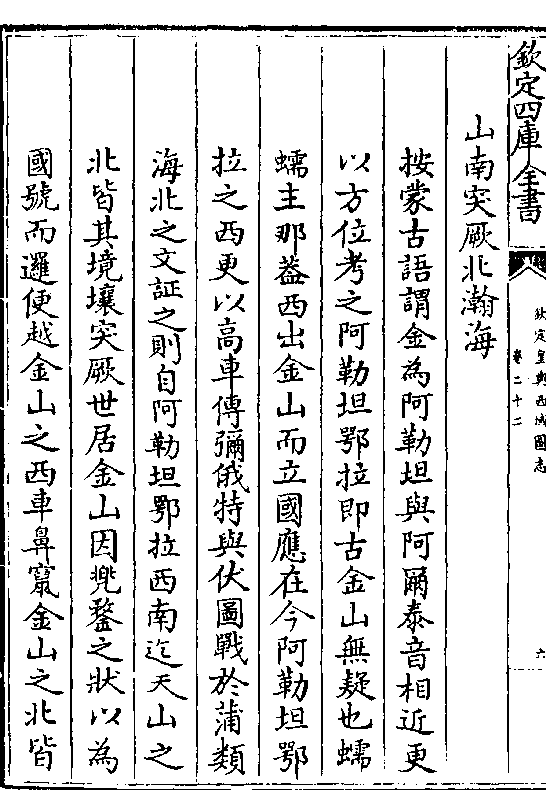 欽定四庫全書
欽定皇輿西域圖志
卷二十二
六
山南突厥北瀚海
按蒙古語謂金為阿勒坦與阿爾泰音相近更
以方位考之阿勒坦鄂拉即古金山無疑也蠕
蠕主那葢西出金山而立國應在今阿勒坦鄂
拉之西更以高車傳彌俄特與伏圖戰於蒲類
海北之文証之則自阿勒坦鄂拉西南迄天山之
北皆其境壤突厥世居金山因兠鍪之狀以為
國號而邏便越金山之西車鼻竄金山之北皆